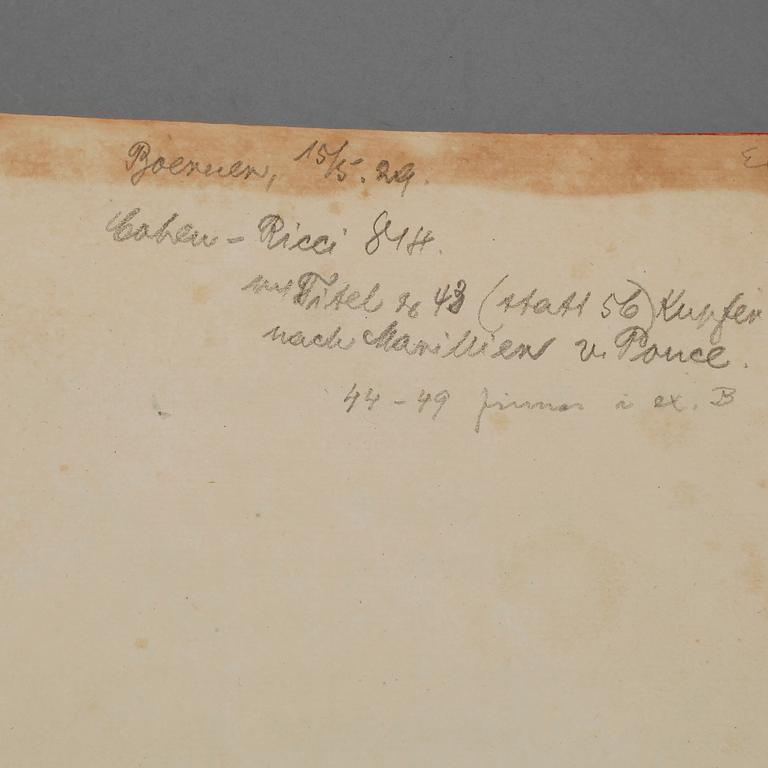 Boerner, 15/5. 29.
Cohen - Ricci 814.
mit Titel & 43 (statt 56) Kupfer
nach Marillier v. Ponce.
44 - 49 finnes i ex. B